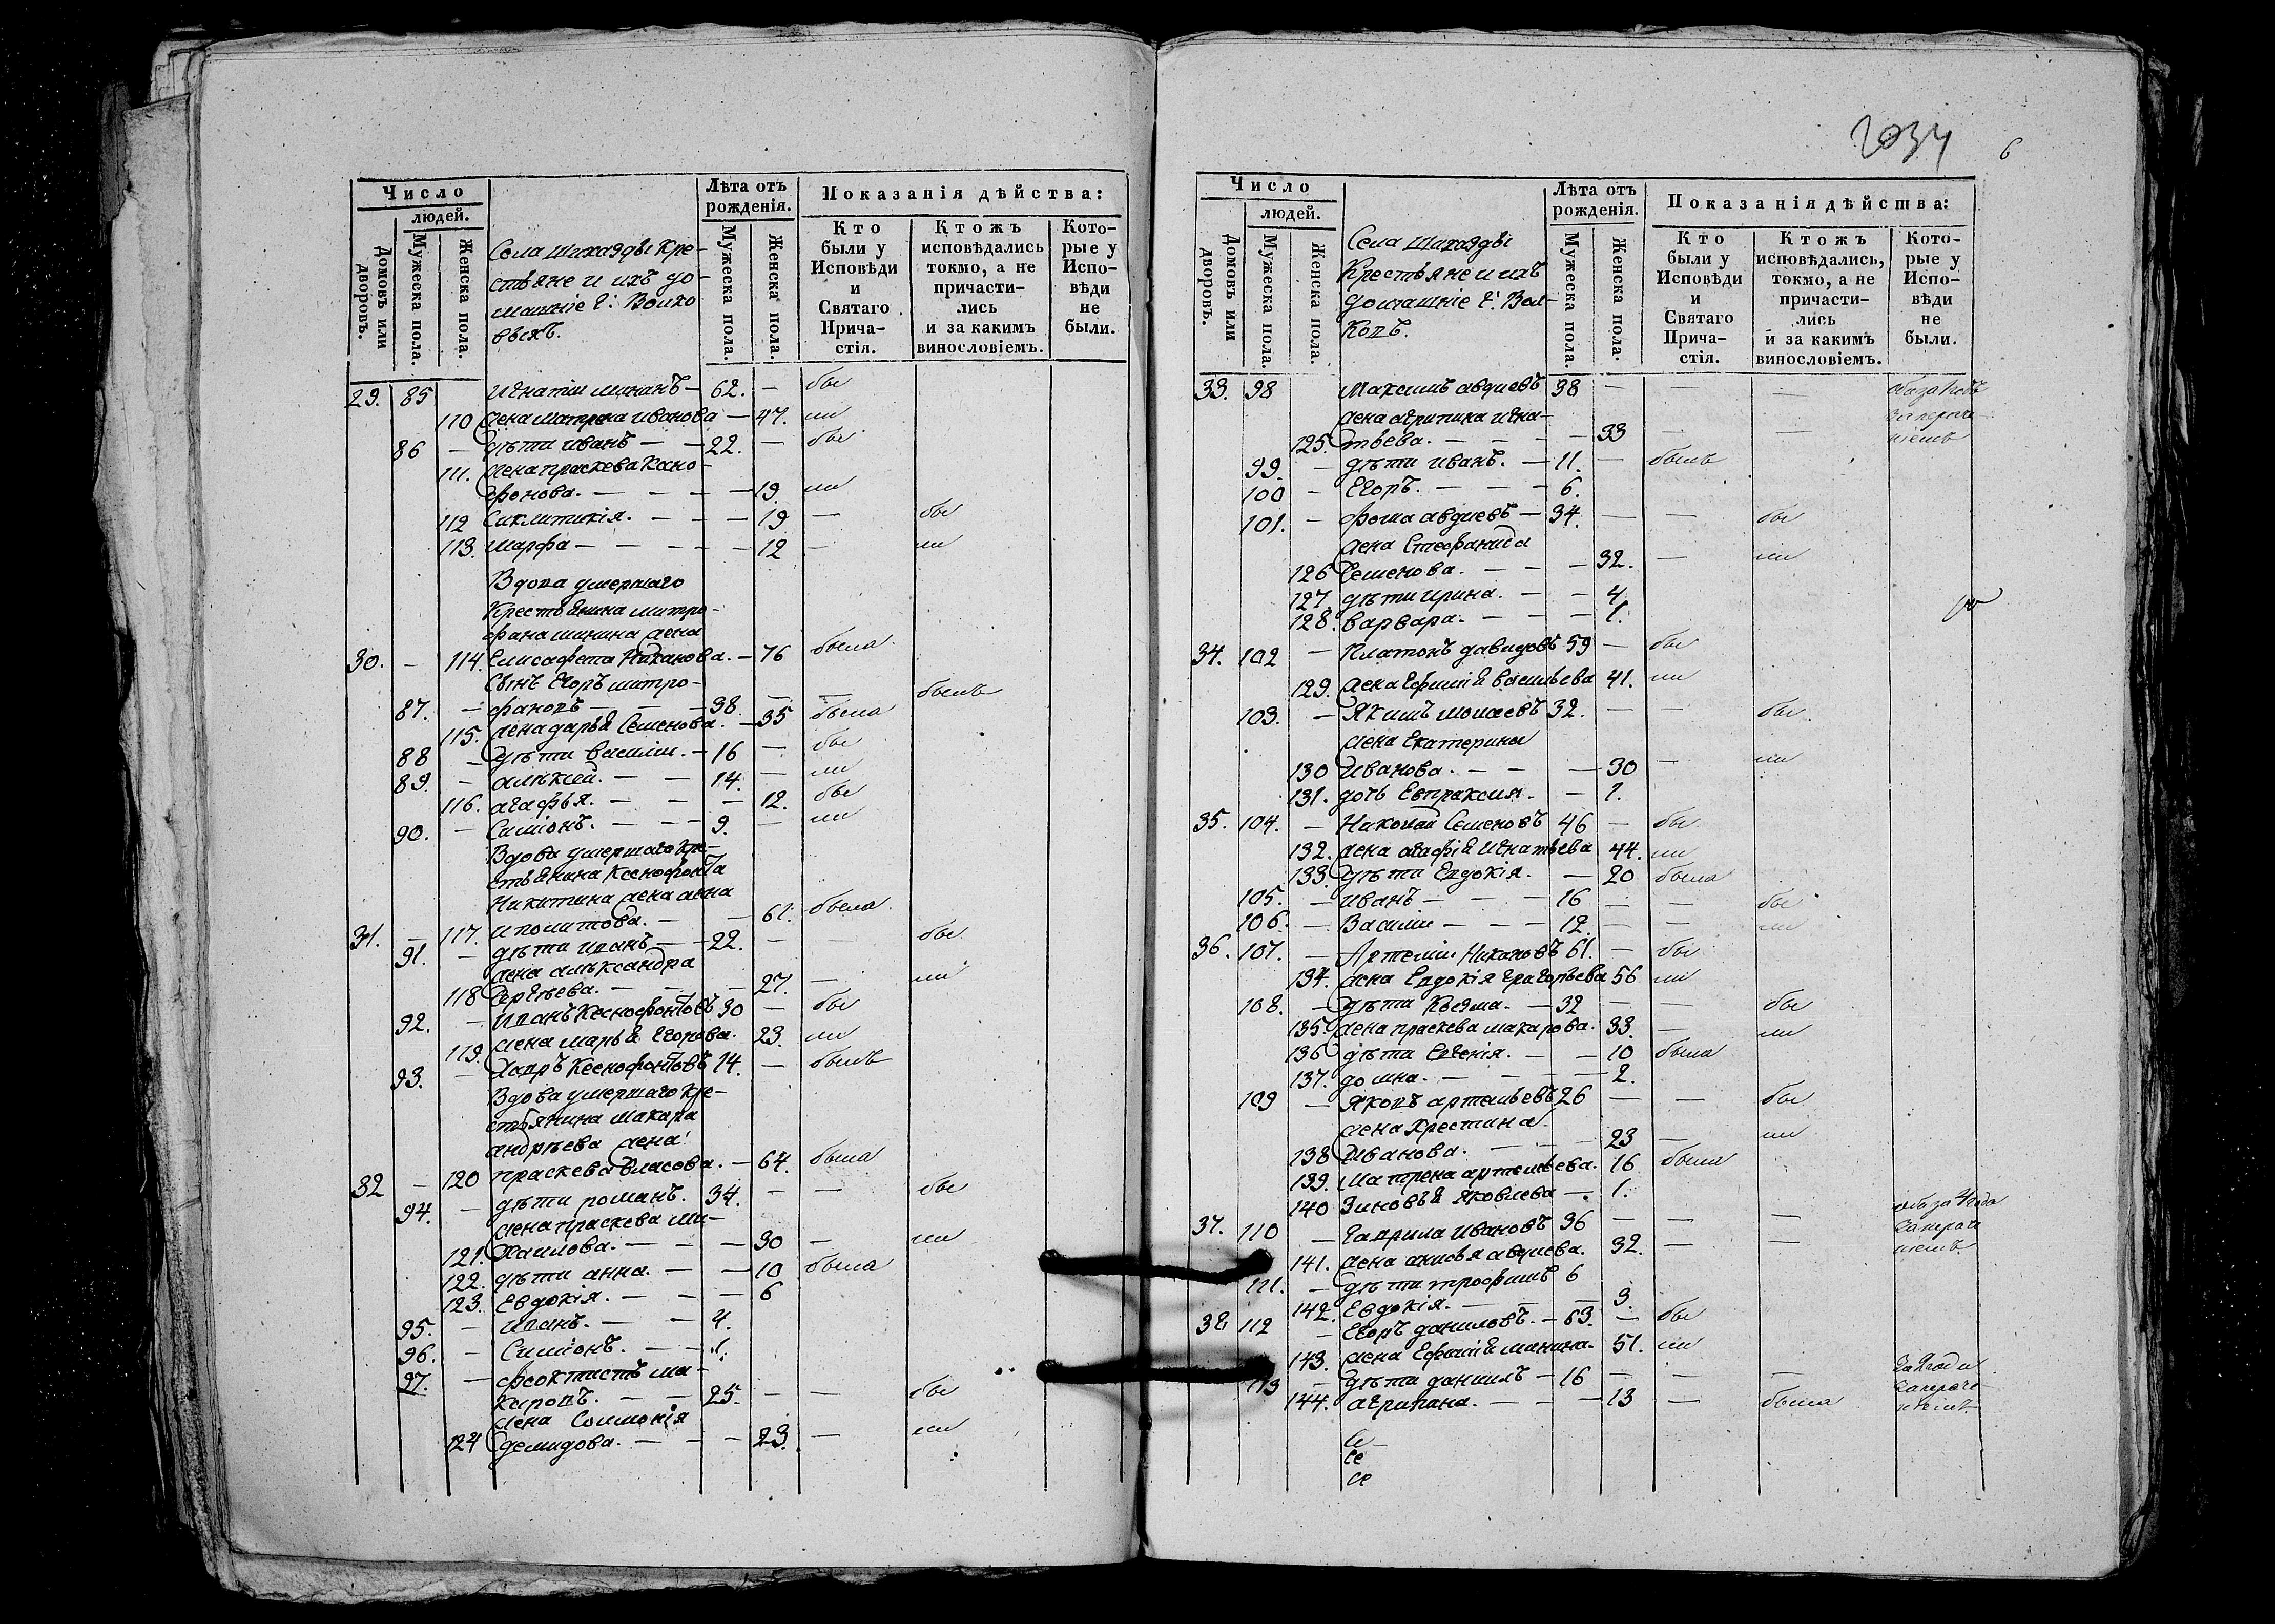 Число
людей.
Домовъ или дворовъ.
Мужеска пола.
Женска пола.
Села Шихазды Кре-
стьяне и ихъ до-
машніе Г: Волко
выхъ.
Лѣта отъ рожденія.
Мужеска пола.
Женска пола.
Показанія дѣйства:
Кто были у Исповѣди и Святаго Прича- стія.
Ктожъ исповѣдались токмо, а не причасти- лись и за какимъ винословіемъ.
Кото- рые у Испо- вѣди не были.
29. 85 Игнатій мининъ — 62. — бы
110 жена матрена иванова — 47. ли
86 — дѣти иванъ — — 22. — бы
111. жена праскева Ксно-
фонова. — — — 19. ли
112 Сиклитикія. — — — 19 — бы
113. марфа — — — — 12 — ли
Вдова умершаго
Крестьянина митро-
фана минина жена
30. — 114. Елисафета Никанова. — 76 была
Сынъ Егоръ митро-
87. — фановъ — — — 38 — — былъ
115. жена дарья Семенова. — 35 была
88 — дѣти василій. — 16 — бы
89. — алѣксей. — — 14. — ли
116. агафья. — — — 12. бы
90. — Симіонъ. — — — 9. — ли
Вдова умершаго кре-
стьянина Ксенофонта
Никитина жена анна
31. — 117. иполитова. — — 61. была
91. — дѣти иванъ — — 22. — — бы
жена алѣксандра
118 Сергѣева. — — — 27. — ли
92. — Иванъ Ксенофонтовъ 30 — бы
119. жена марья Егорова. 23. ли
93. — Хапръ Ксенофонтовъ 14. — былъ
Вдова умершаго кре-
стьянина макара
андрѣева жена
32 — 120 праскева власова. — 64. была
94. — дѣти романъ. 34. — — бы
жена праскева ми-
121. хаилова. — — — 30 — ли
122. дѣти анна. — — 10 была
123. Евдокія. — — — 6
95. — иванъ. — — 4.
96. — Симіонъ. — — 1.
97. — феоктистъ ма-
каровъ. — — 25. — — бы
жена Соломонія
124 демидова. — — — 23. — ли
2034
6
Число
людей.
Домовъ или дворовъ.
Мужеска пола.
Женска пола.
Села Шихазды
Крестьяне и ихъ
домашніе Г: Вол-
ковъ.
Лѣта отъ рожденія.
Мужеска пола.
Женска пола.
Показанія дѣйства:
Кто были у Исповѣди и Святаго Прича- стія.
Ктожъ исповѣдались, токмо, а не причасти- лись и за какимъ винословіемъ.
Кото- рые у Испо- вѣди не были.
33. 98 Максимъ авдиевъ 38 — — —
жена агрипина игна-
125. тьева. — — — — 33 — —
99. — дѣти иванъ. — 11. — былъ
100 — Егоръ. — — — 6.
101. — фома авдиевъ — 34. — — бы
жена Стефанида
126 Семенова. — — — 32. — ли
127. дѣти ирина. — — 4.
128. варвара. — — — 1.
34. 102 — Платонъ давидовъ 59 — бы
129. жена Ефимія васильева 41. ли
103. — Якимъ моисеевъ 32. — — бы
жена Екатерина
130 Иванова. — — — 30 — ли
131. дочь Евпраксия. — — 1.
35. 104. — Николай Семеновъ 46 — бы
132. жена агафія Игнатьева 44. ли
133. дѣти Евдокія. — 20 была
105. — иванъ — — — 16 — — бы
106. — Василій — — — 12. — — ли
36. 107. — Артемій Никановъ 61. — бы
134. жена Евдокія григорьева 56 ли
108. — дѣти Кузма. — 32 — — бы
135. жена праскева макарова. 33. — ли
136 дѣти Евгенія. — — 10 была
137. домна. — — — — 2.
109 — Яковъ артемьевъ 26 — — бы
жена Хрестина
138 Иванова. — — — 23 — ли
139. Матрена артемьева. 16 была
140 Зиновья Яковлева — 1.
37. 110 — Гаврила Ивановъ 36 — — —
141. жена анисья авдиева. 32. — —
111. — дѣти трофимъ 6
142. Евдокія. — — — 3.
38 112 — Егоръ даниловъ. — 63. — бы
143. жена Ефимія минина. 51. ли
113 — дѣти даниилъ — 16 — — —
144. агрипина. — — — 13 — была